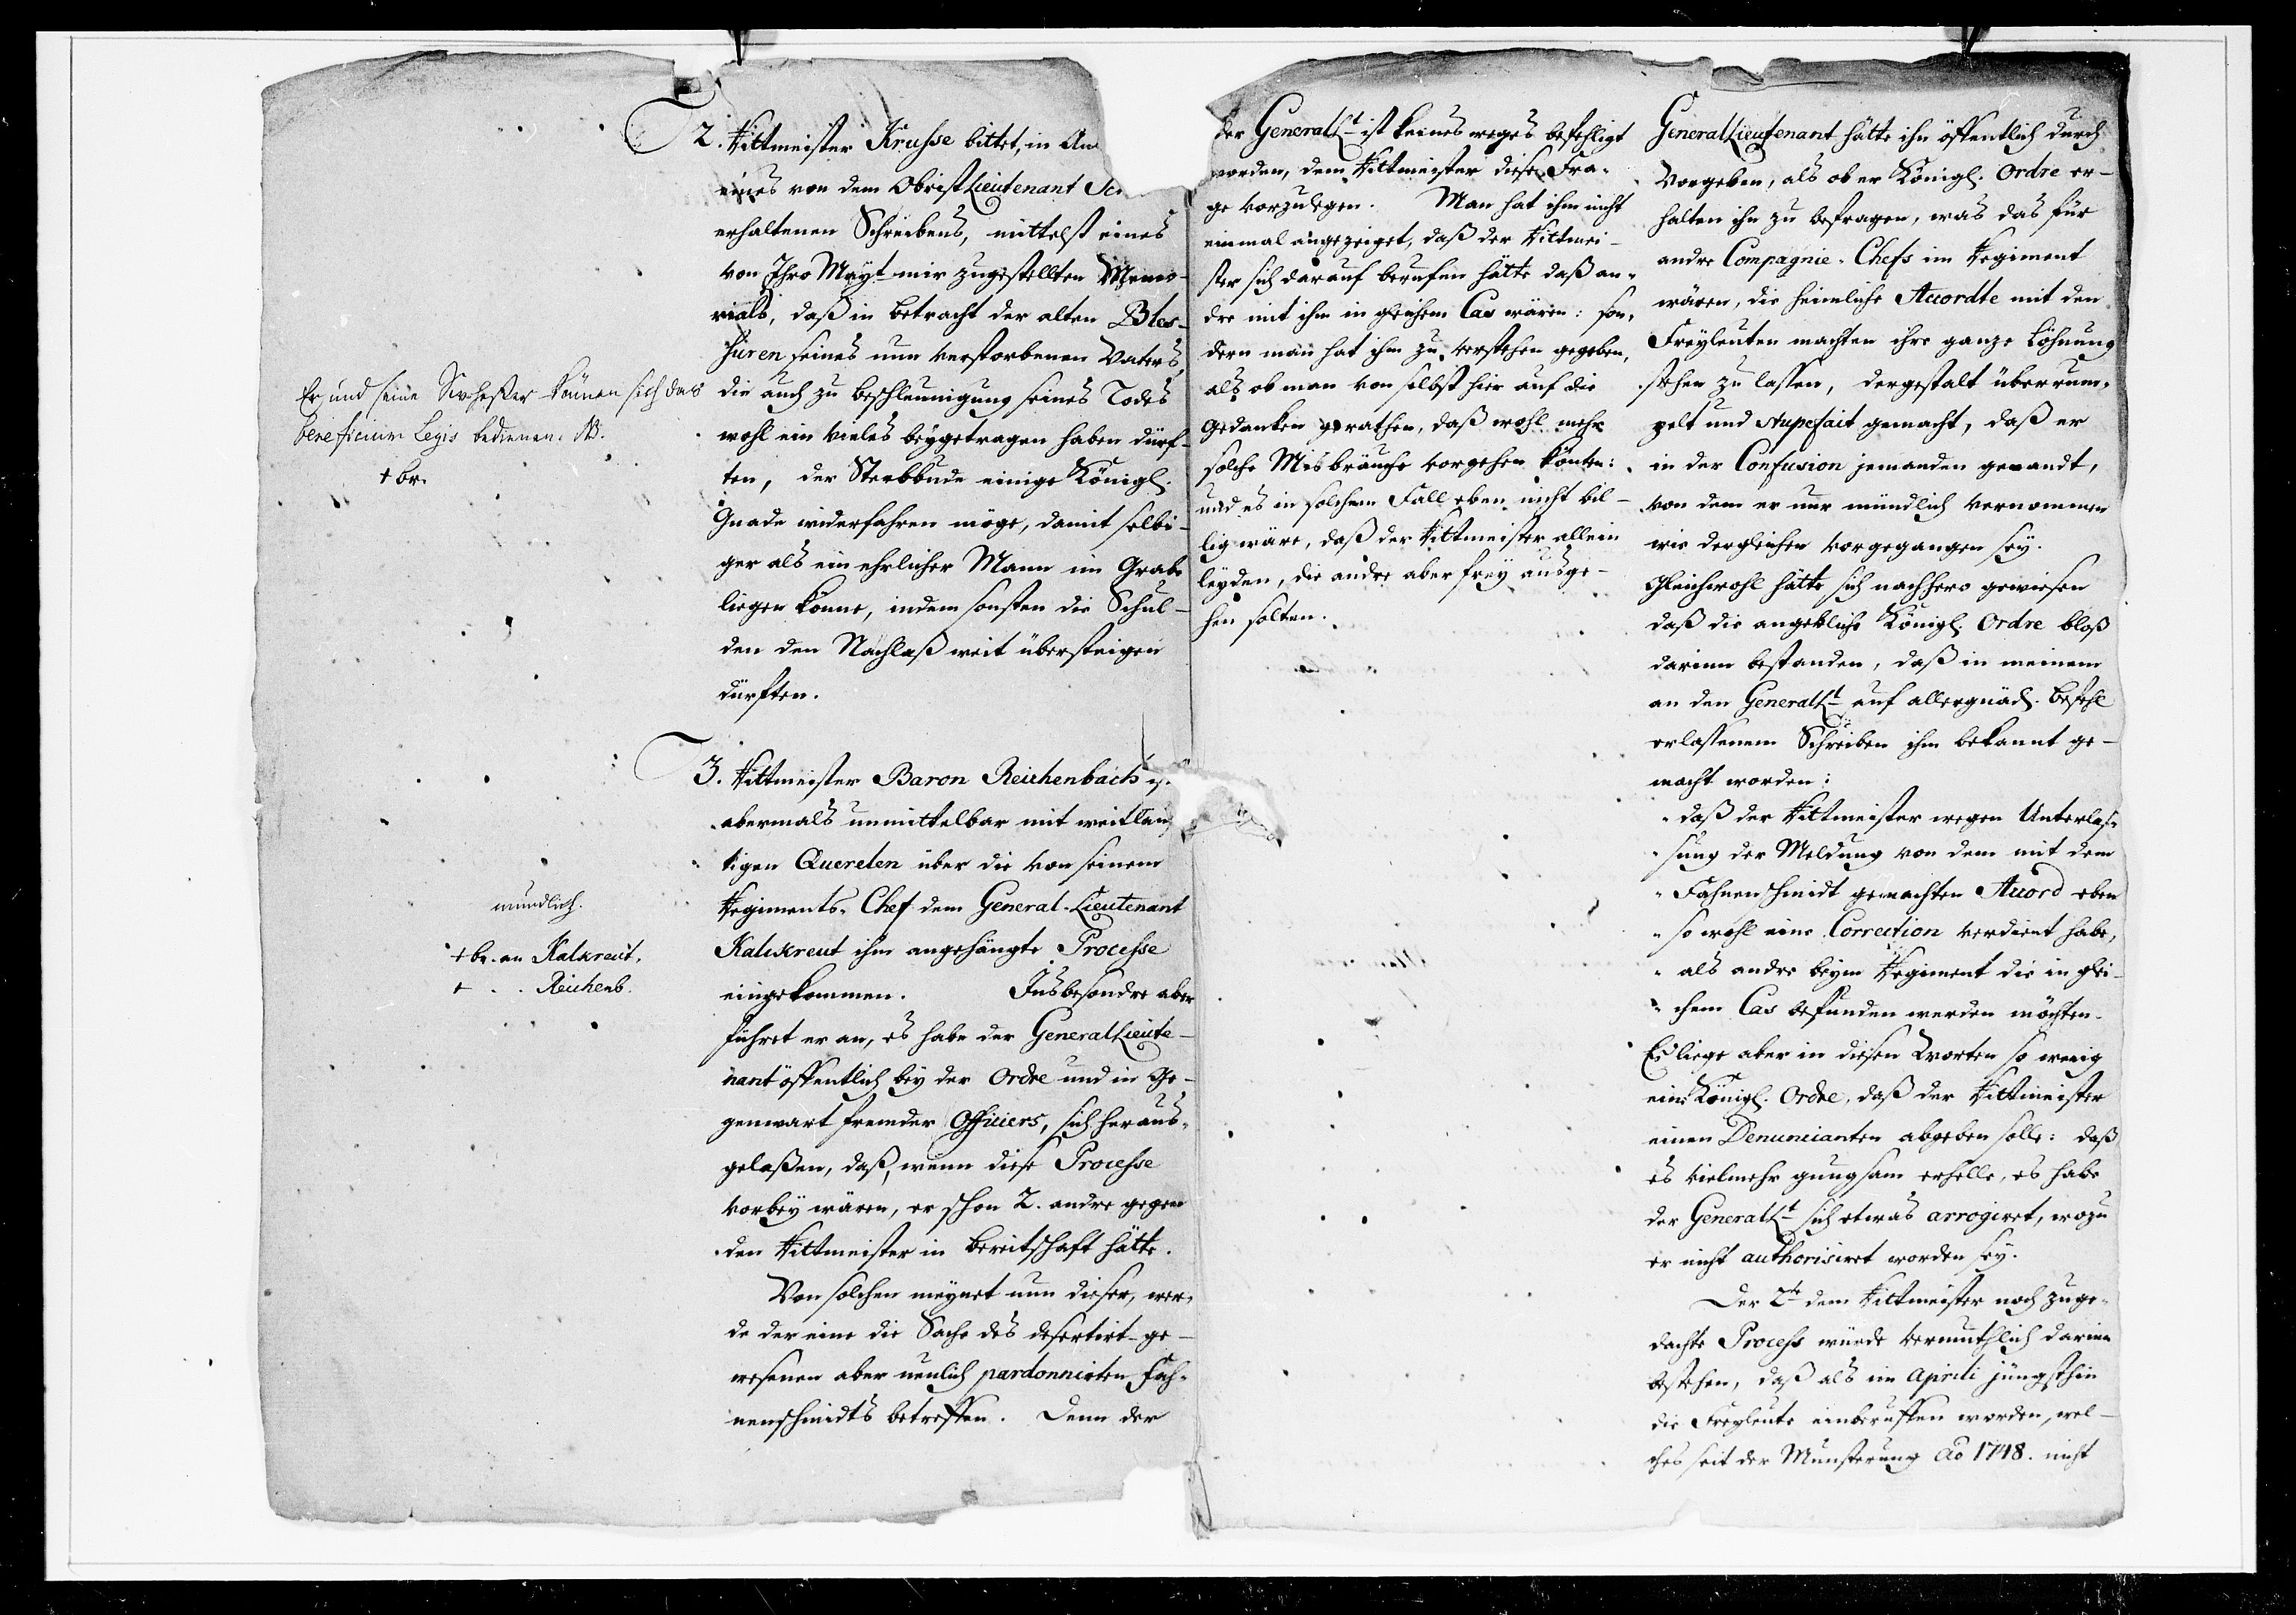 2. Rittmeister Krusse bittet, in An
eines von dem Obristlieutenant Sc
erhaltenen Schreibens, mittelst eines
von Ihro Mayt mir zugestellten Memo-
rials, daß in betracht der alten Bles-
suren seines nun verstorbenen Vaters,
die auch zu beschleunigung seines Todes
wohl ein vieles beygetragen haben dürf-
ten, der Sterbbude einige Königl.
Gnade widerfahren möge, damit selbi-
ger als ein ehrlicher Mann im Grabe
liegen könne, indem sonsten die Schul-
den den Nachlaß weit übersteigen
dürften.
Er und seine Schwester können sich des
beneficium Legis bedienen. NB.
+ br.
3. Rittmeister Baron Reichenbach ist
abermals unmittelbar mit weitläuf
tigen Querelen über die von seinem
Regiments-Chef dem General-Lieutenant
Kalckreut ihm angehängte Processe
eingekommen. Insbesondre aber
führet er an, es habe der GeneralLieute-
nant öffentlich bey der Ordre und in Ge-
genwart fremder Officiers, sich heraus-
gelaßen, daß, wenn diese Processe
vorbey wären, er schon 2. andre gegen
den Rittmeister in bereitschaft hätte.
Von solchen meynet nun dieser, wer-
de der eine die Sache des desertirt-ge-
wesenen aber neulich pardonnirten Fah-
nenschmidts betreffen. Denn der
mündlich.
+ br. an Kalkreut.
+ . . Reichenb.
der GeneralLt ist keines weges befehligt
worden, dem Rittmeister diese Fra-
ge vorzulegen. Man hat ihm nicht
einmal angezeiget, daß der Rittmei-
ster sich darauf berufen hätte daß an-
dre mit ihm in gleichem Cas wären: son-
dern man hat ihm zu verstehen gegeben,
als ob man von selbst hier auf die
Gedanken gerathen, daß wohl mehr
solche Misbräuche vorgehen könten:
und es in solchem Fall eben nicht bil-
lig wäre, daß der Rittmeister allein
leyden, die andre aber frey ausge-
hen solten.
GeneralLieutenant hätte ihn öffentlich durch
Vorgeben, als ob er Königl. Ordre er-
halten ihn zu befragen, was das für
andre Compagnie-Chefs im Regiment
wären, die heimliche Accordte mit den
Freyleuten machten ihre ganze Löhnung
stehen zu lassen, dergestalt überrum-
pelt und stupefait gemacht, daß er
in der Confusion jemanden genandt,
von dem er nur mündlich vernommen
wie dergleichen vorgegangen sey.
Gleichwohl hätte sich nachhero gewiesen
daß die angebliche Königl. Ordre bloß
darinn bestanden, daß in meinem
an den GeneralLt auf allergnäd. befehl
erlassenem Schreiben ihm bekannt ge-
macht worden:
" daß der Rittmeister wegen Unterlas-
" sung der Meldung von dem mit dem
" Fahnenschmidt gemachten Accord eben
" so wohl eine Correction verdient habe,
" als andre beym Regiment die in glei-
" chem Cas befunden werden möchten.
Es liege aber in diesen Worten so wenig
eine Königl. Ordre, daß der Rittmeister
einen Denuncianten abgeben solle: daß
es vielmehr gnugsam erhelle, es habe
der GeneralLt sich etwas arrogiret, wozu
er nicht authorisiret worden sey.
Der 2te dem Rittmeister noch zuge-
dachte Process würde vermuthlich darinn
bestehen, daß als im Aprili jüngsthin
die Freyleute einberuffen worden, wel-
ches seit der Munsterung Ao 1748. nicht